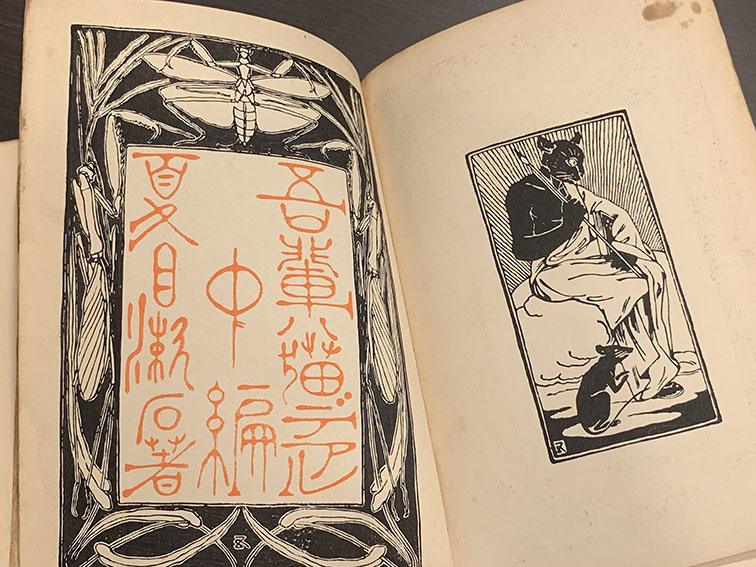 吾輩ハ猫デアル
中編
夏目漱石著